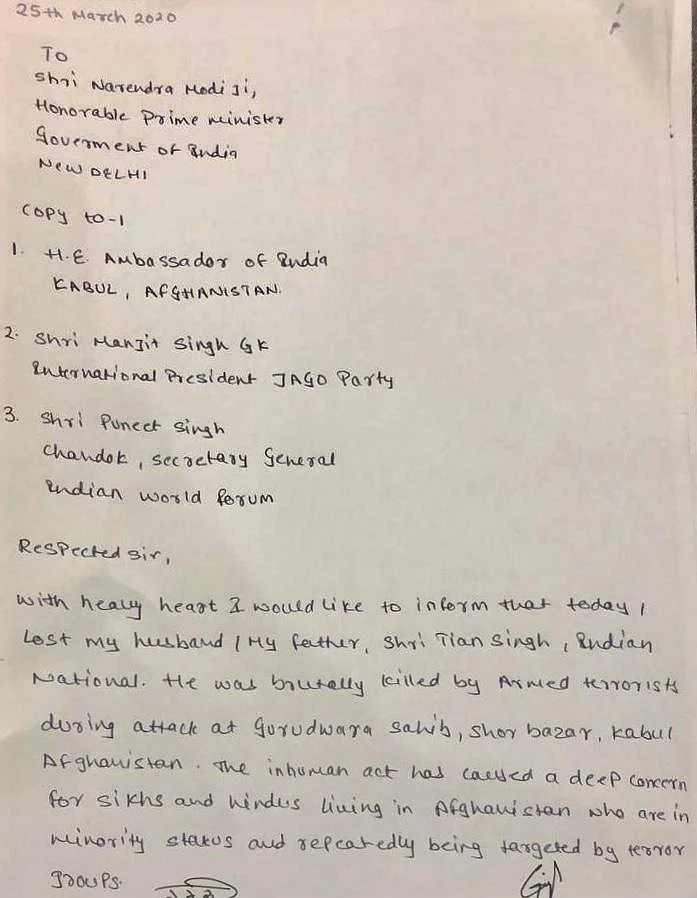 25th March 2020
To
Shri Narendra Modi Ji,
Honorable Prime Minister
Goverment of India
New DELHI
Copy to-1
1. H.E. Ambassador of India
KABUL, AFGHANISTAN.
2. Shri Manjit Singh GK
International President JAGO Party
3. Shri Puneet Singh
Chandok, Secretary General
Indian World Forum
Respected Sir,
With heavy heart I would like to inform that today I
Lost my husband / My father, Shri Tian Singh, Indian
National. He was brutally killed by Armed terrorists
during attack at Gurudwara Sahib, Shor bazar, Kabul
Afghanistan. The inhuman act has caused a deep concern
for Sikhs and hindus living in Afghanistan who are in
minority status and repeatedly being targeted by terror
groups.